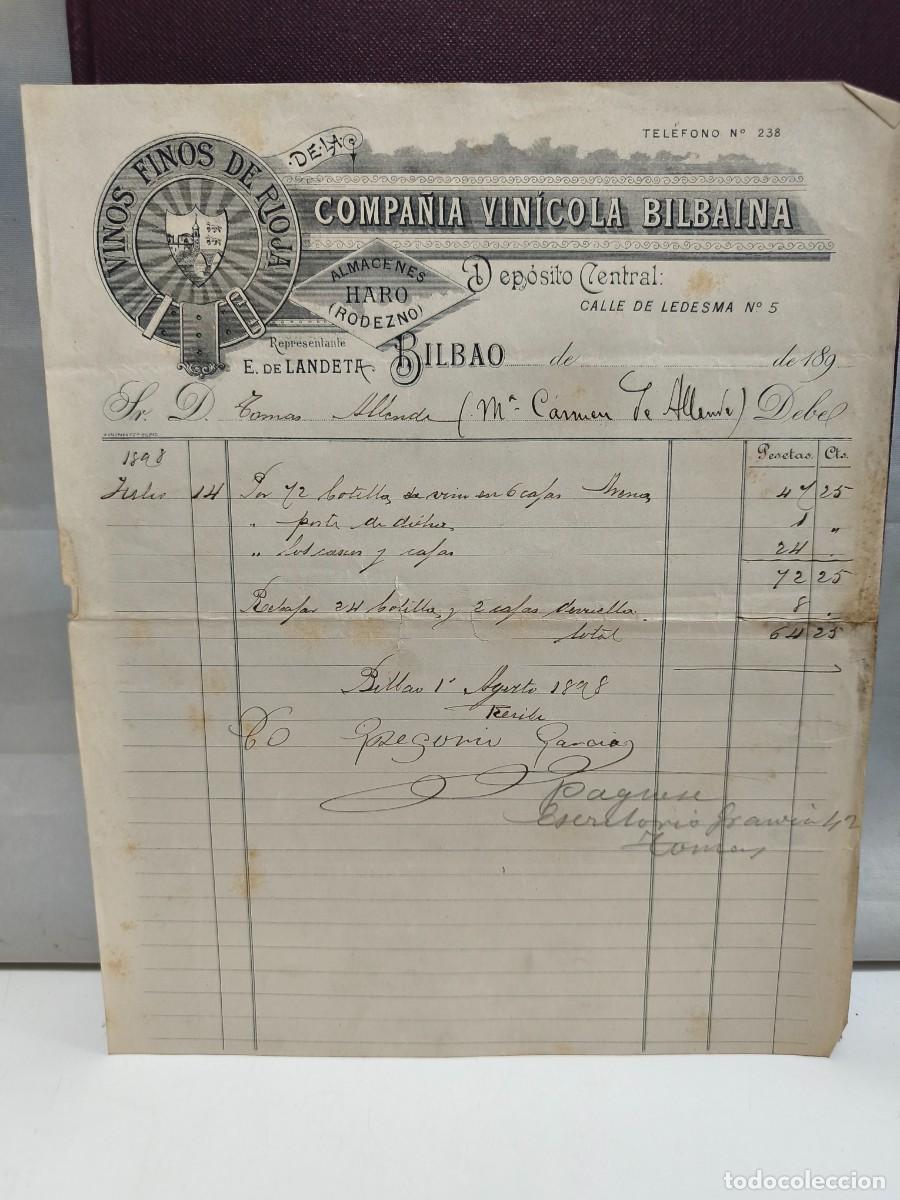 TELÉFONO Nº 238
VINOS FINOS DE RIOJA
DE LA
COMPAÑIA VINÍCOLA BILBAINA
ALMACENES
HARO
(RODEZNO)
Depósito Central:
CALLE DE LEDESMA Nº 5
Representante
E. DE LANDETA
BILBAO de de 189
Sr. D. Tomas Allende (Mª Cármen de Allende) Debe
Pesetas. Cts.
1898
Julio 14 Por 72 botellas de vino en 6 cajas 47 25
" porte de dichas 1 "
" los cascos y cajas 24 .
72 25
Rebajar 24 botellas y 2 cajas 8 .
total 64 25
Bilbao 1º Agosto 1898
Recibi
Gregorio Garcia
Paguese
Escritorio Gravia 42
Tomas
todocoleccion